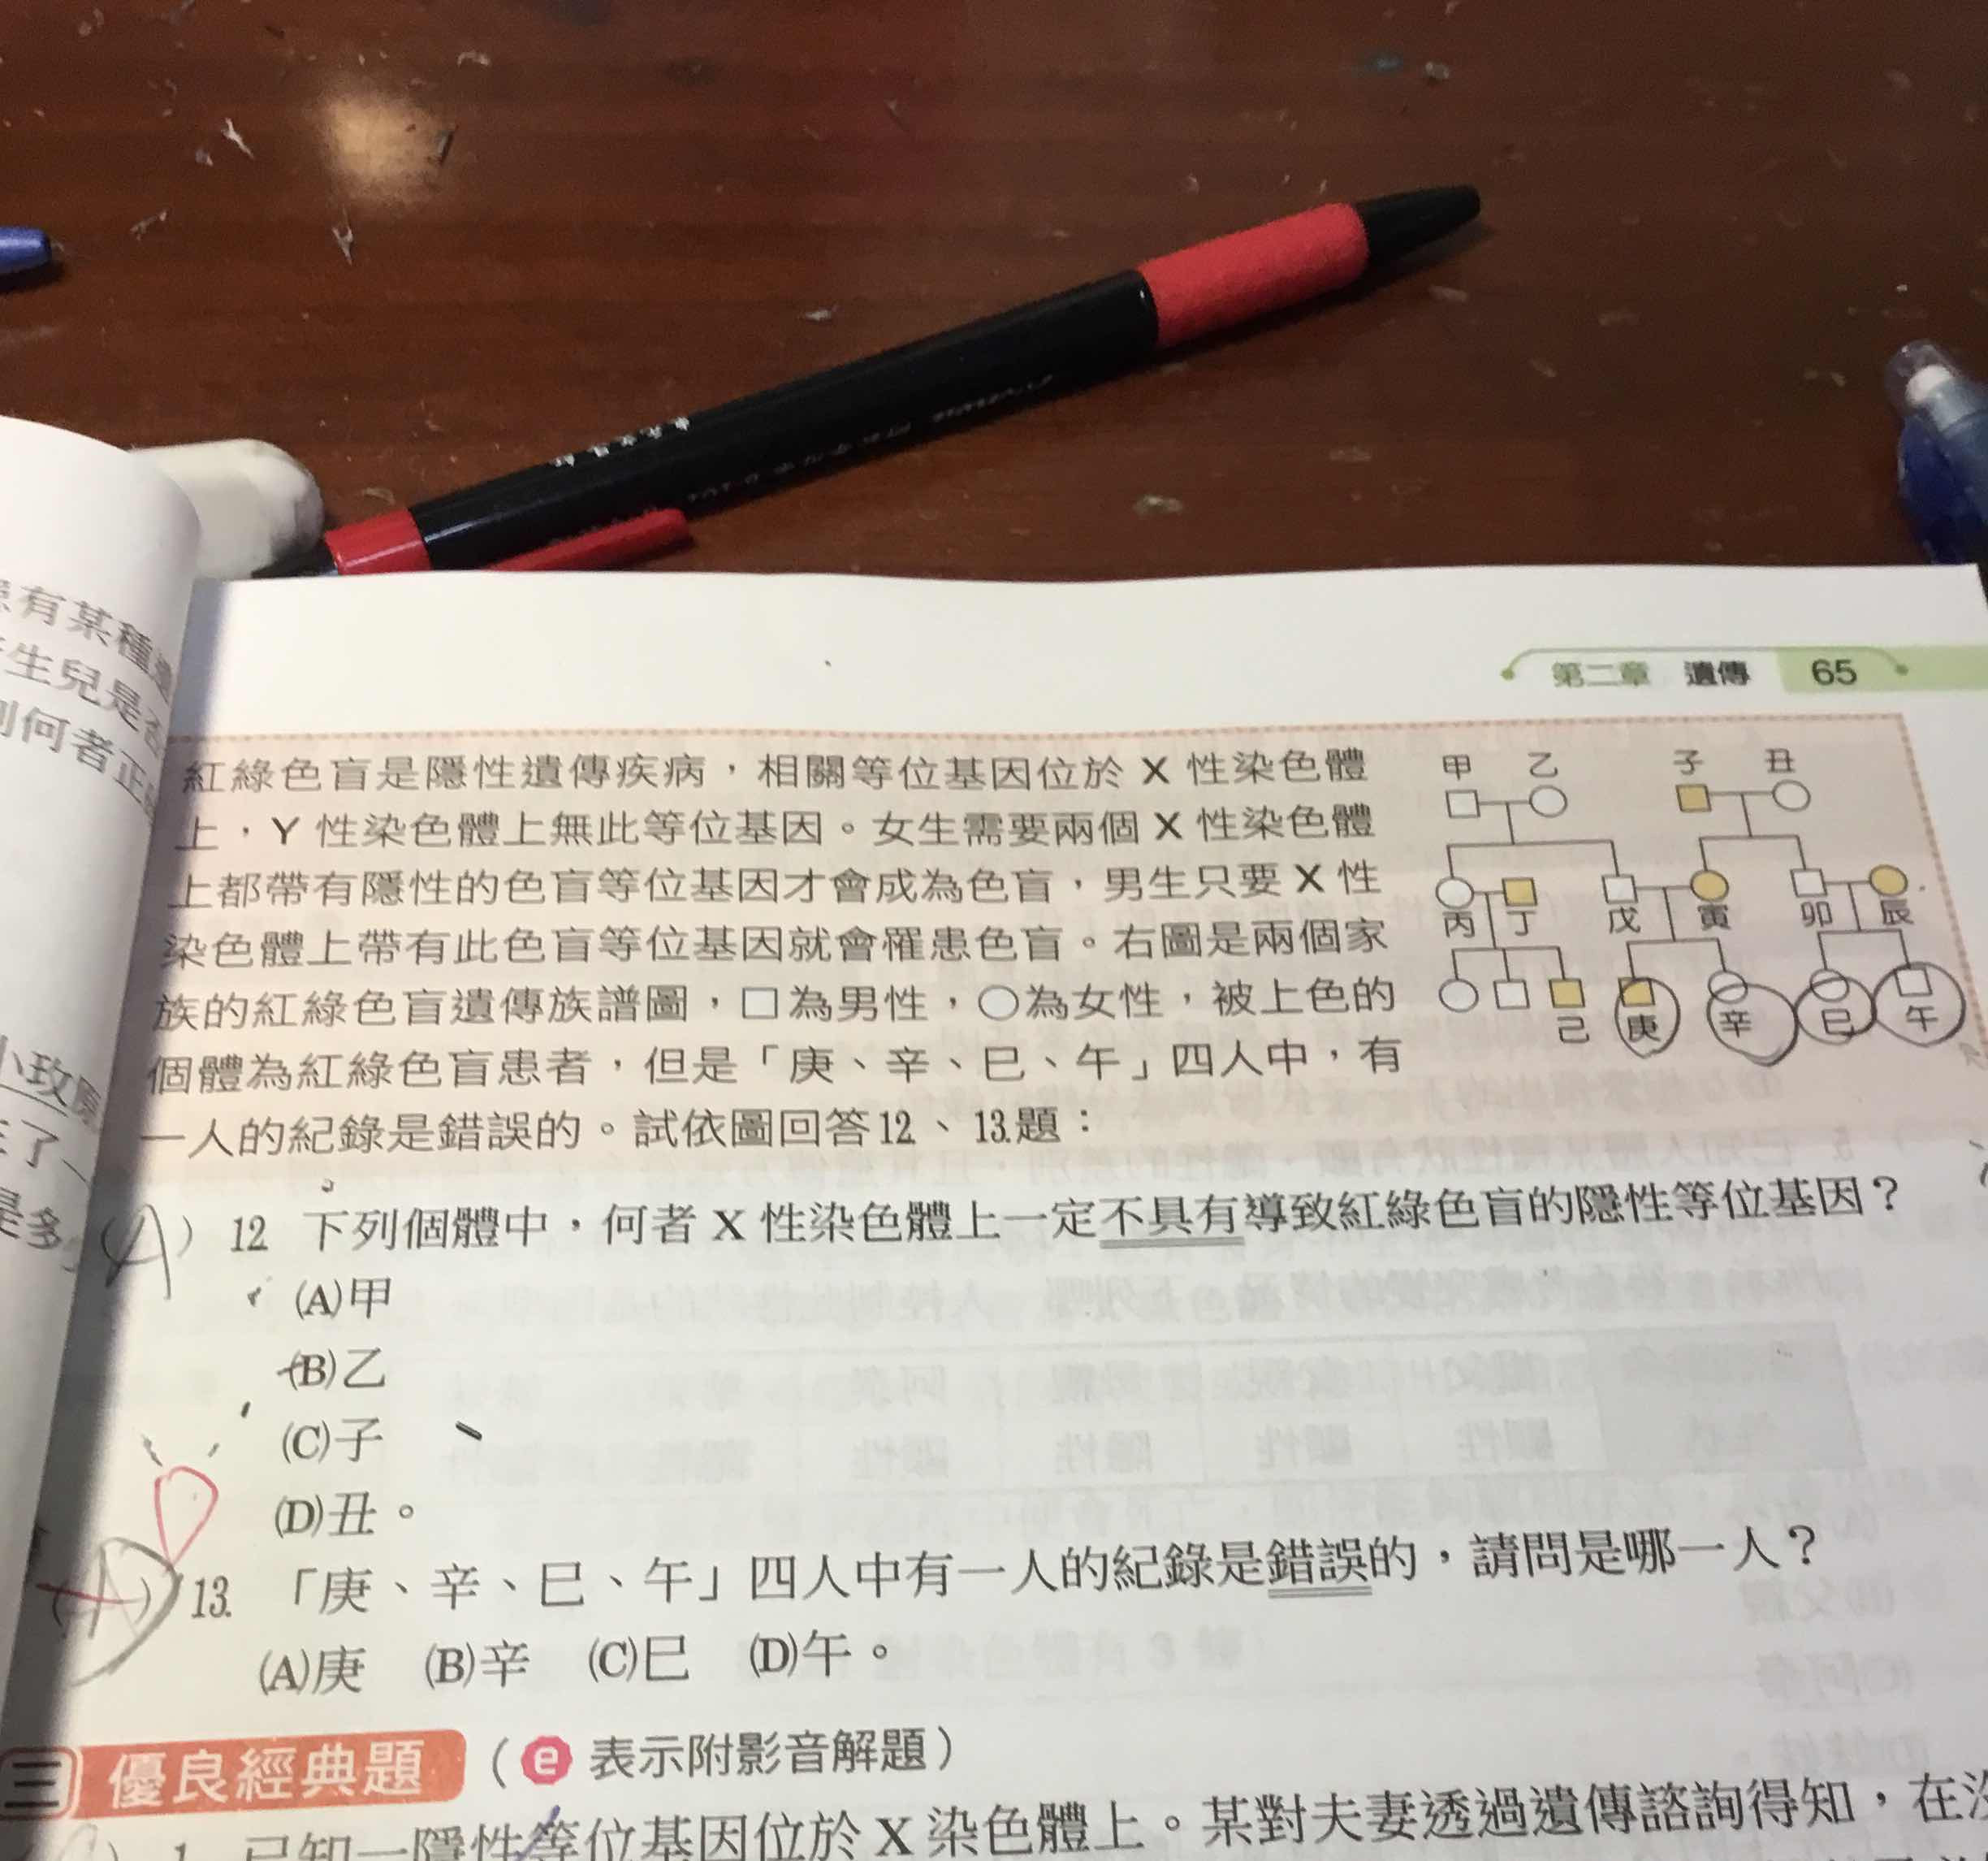 第二章 遺傳 65
有某種
生兒是否
何者正
小玫
紅綠色盲是隱性遺傳疾病，相關等位基因位於 X 性染色體
上，Y 性染色體上無此等位基因。女生需要兩個 X 性染色體
上都帶有隱性的色盲等位基因才會成為色盲，男生只要 X 性
染色體上帶有此色盲等位基因就會罹患色盲。右圖是兩個家
族的紅綠色盲遺傳族譜圖，□為男性，○為女性，被上色的
個體為紅綠色盲患者，但是「庚、辛、巳、午」四人中，有
一人的紀錄是錯誤的。試依圖回答12、13.題：
甲 乙 子 丑
丙 丁 戊 寅 卯 辰
己 庚 辛 巳 午
(A) 12. 下列個體中，何者 X 性染色體上一定不具有導致紅綠色盲的隱性等位基因？
(A)甲
(B)乙
(C)子
(D)丑。
(A) 13. 「庚、辛、巳、午」四人中有一人的紀錄是錯誤的，請問是哪一人？
(A)庚 (B)辛 (C)巳 (D)午。
三 優良經典題 （e 表示附影音解題）
1. 已知一隱性等位基因位於 X 染色體上。某對夫妻透過遺傳諮詢得知，在沒